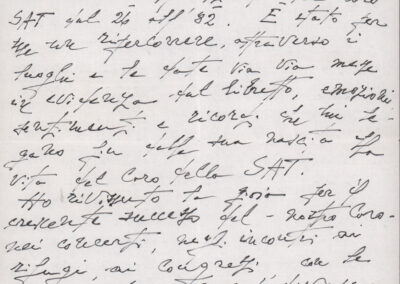 SAT dal 26 all'82. È stato per
me un ripercorrere, attraverso i
luoghi e le date via via messe
in evidenza dal libretto, emozioni
sentimenti e ricordi che mi le-
gano fin dalla sua nascita alla
vita del Coro della SAT.
Ho rivissuto la gioia per il
crescente successo del - nostro Coro -
nei concerti, negli incontri ai
rifugi, ai congressi con le